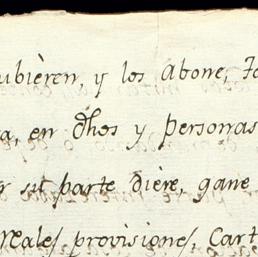 ubièren, y los Abone, To
a, en dhos y personas
r su parte dière, gane
Reales provisiones, Cart